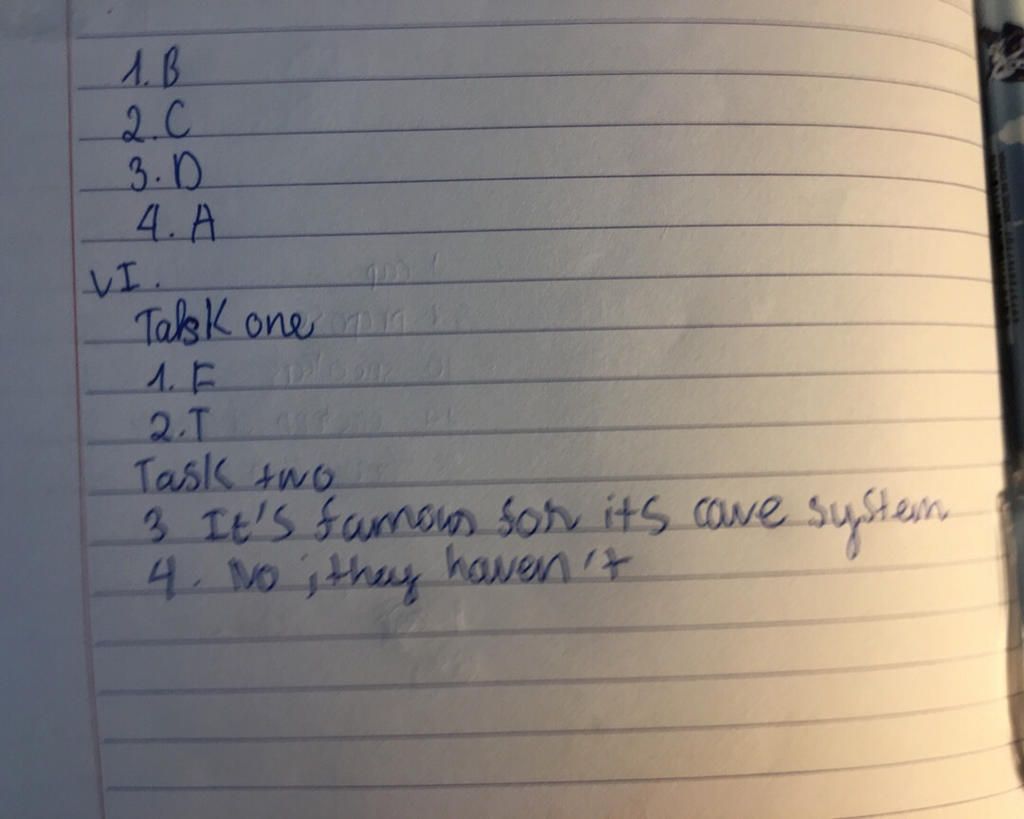 1. B
2. C
3. D
4. A
VI.
Tabsk one
1. F
2. T
Task two
3 It's famous for its cave system
4. No, they haven't